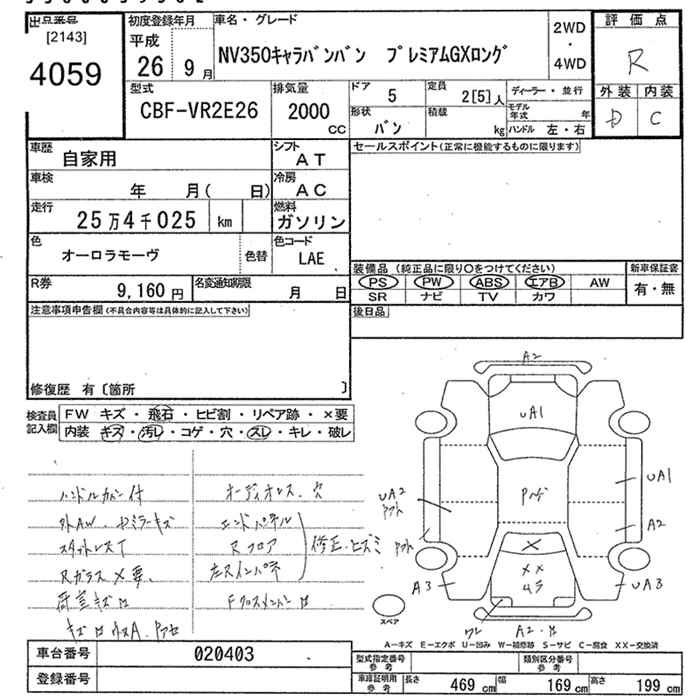 出品番号
[2143]
4059
初度登録年月
平成
26 9月
車名・グレード
NV350キャラバンバン プレミアムGXロング
2WD
・
4WD
評価点
R
外装 内装
D C
型式
CBF-VR2E26
排気量
2000
CC
ドア
5
定員
2[5]人
ディーラー・並行
形状
バン
積載
kg
モデル年式 年
ハンドル 左・右
車歴
自家用
シフト
AT
セールスポイント(正常に機能するものに限ります)
車検
年 月( 日)
冷房
AC
走行
25万4千025 km
燃料
ガソリン
色
オーロラモーヴ
色替
色コード
LAE
装備品 (純正品に限り○をつけてください)
新車保証書
PS PW ABS エアB AW
有・無
SR ナビ TV カワ
R券
9,160円
名変通知期限
月 日
後日品
注意事項申告欄(不具合内容等は具体的に記入して下さい)
修復歴 有〔箇所 〕
検査員記入欄
FW キズ・飛石・ヒビ割・リペア跡・×要
内装 キズ・汚レ・コゲ・穴・スレ・キレ・破レ
ハンドルカバー付
オーディオレス、穴
外AW、
キズ
エンドパネル
スタットレスT
Rフロア
修正・ヒズミ
Rガラス×要、
左R
荷室キズ
Fクロスメンバー
キズ
A2
UA1
UA2
UA1
A2
A3
UA3
××
A2
スペア
A−キズ E−エクボ U−凹み W−補修跡 S−サビ C−腐食 XX−交換済
車台番号
020403
登録番号
型式指定番号
参考
類別区分番号
参考
車庫証明用
参考
長さ 469 cm 幅 169 cm 高さ 199 cm